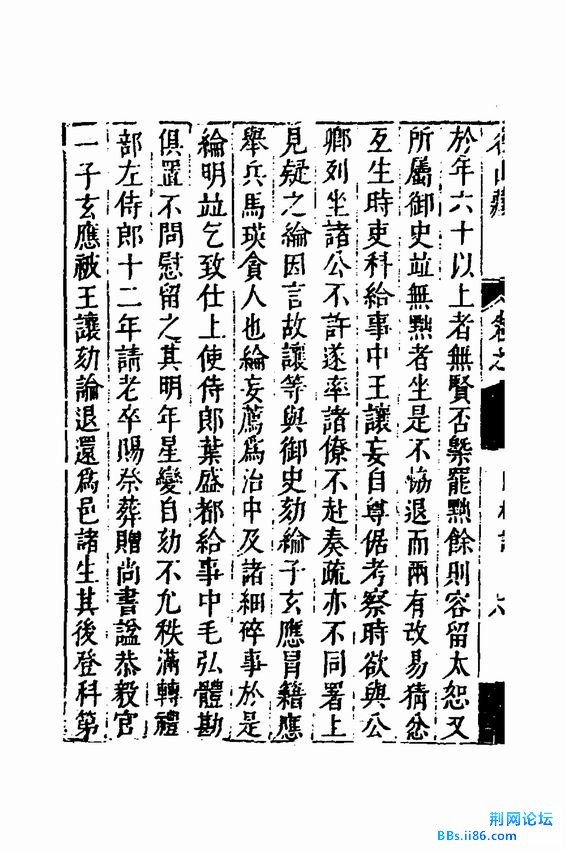 於年六十以上者無賢否槩罷黜餘則容留太恕又
所屬御史並無黜者坐是不恊退而兩有改易猜忿
互生時吏科給事中王讓妄自尊倨考察時欲與公
卿列坐諸公不許遂率諸僚不赴奏疏亦不同署上
見疑之綸因言故讓等與御史劾綸子玄應冒籍應
舉兵馬瑛貪人也綸妄薦爲治中及諸細碎事於是
綸明竝乞致仕上使侍郎葉盛都給事中毛弘體勘
俱置不問慰留之其明年星變自劾不允秩滿轉禮
部左侍郎十二年請老卒賜祭葬贈尚書諡恭毅官
一子玄應被王讓劾論退還爲邑諸生其後登科第
荆网论坛
BBs.ii86.com